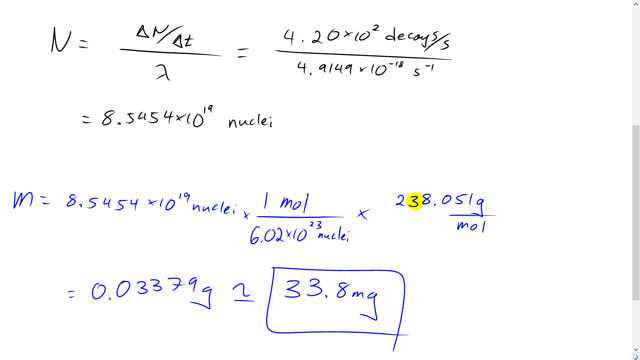 N = ΔN/Δt / λ = 4.20×10² decays/s / 4.9149×10⁻¹⁸ s⁻¹
= 8.5454×10¹⁹ nuclei
m = 8.5454×10¹⁹ nuclei × 1 mol / 6.02×10²³ nuclei × 238.051g / mol
= 0.03379g ≃ 33.8mg